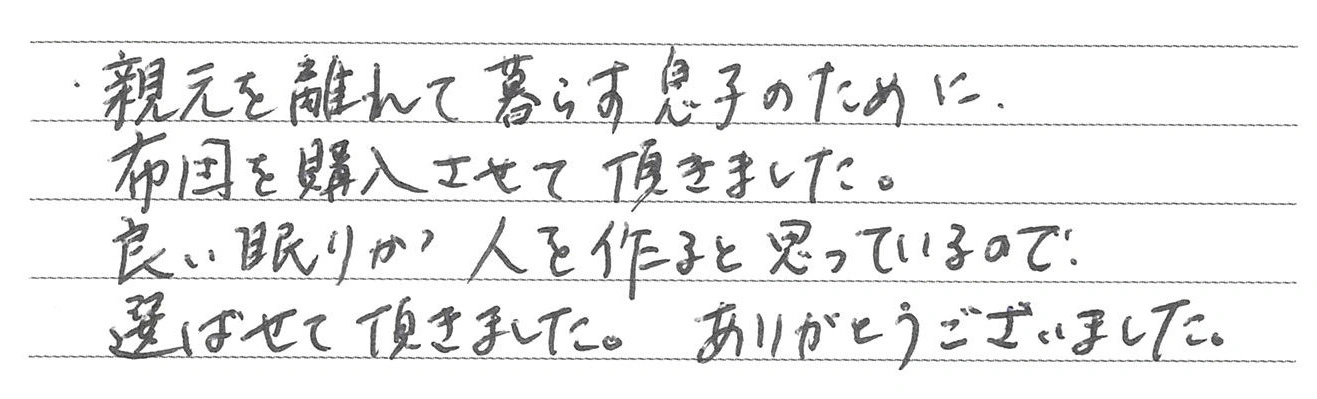 ・親元を離れて暮らす息子のために、
布団を購入させて頂きました。
良い眠りが人を作ると思っているので、
選ばせて頂きました。 ありがとうございました。